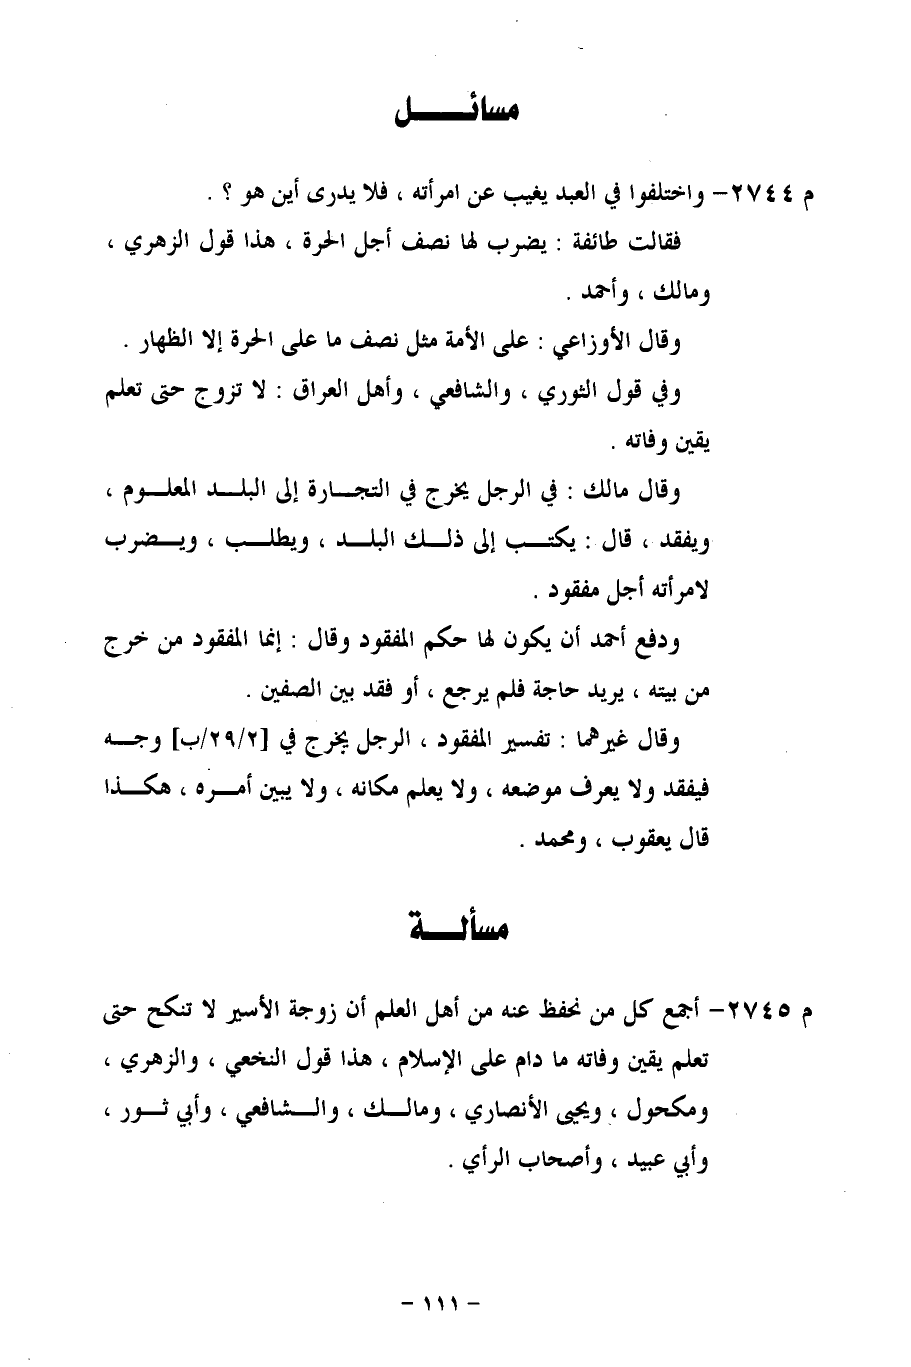 مسائل
م ٢٧٤٤- واختلفوا في العبد يغيب عن امرأته ، فلا يدرى أين هو ؟ .
فقالت طائفة : يضرب لها نصف أجل الحرة ، هذا قول الزهري ،
ومالك ، وأحمد .
وقال الأوزاعي : على الأمة مثل نصف ما على الحرة إلا الظهار .
وفي قول الثوري ، والشافعي ، وأهل العراق : لا تزوج حتى تعلم
يقين وفاته .
وقال مالك : في الرجل يخرج في التجارة إلى البلد المعلوم ،
ويفقد ، قال : يكتب إلى ذلك البلد ، ويطلب ، ويضرب
لامرأته أجل مفقود .
ودفع أحمد أن يكون لها حكم المفقود وقال : إنما المفقود من خرج
من بيته ، يريد حاجة فلم يرجع ، أو فقد بين الصفين .
وقال غيرهما : تفسير المفقود ، الرجل يخرج في [٢٩/٢/ب] وجه
فيفقد ولا يعرف موضعه ، ولا يعلم مكانه ، ولا يبين أمره ، هكذا
قال يعقوب ، ومحمد .
مسألة
م ٢٧٤٥- أجمع كل من نحفظ عنه من أهل العلم أن زوجة الأسير لا تنكح حتى
تعلم يقين وفاته ما دام على الإسلام ، هذا قول النخعي ، والزهري ،
ومكحول ، ويحيى الأنصاري ، ومالك ، والشافعي ، وأبي ثور ،
وأبي عبيد ، وأصحاب الرأي .
- ١١١ -